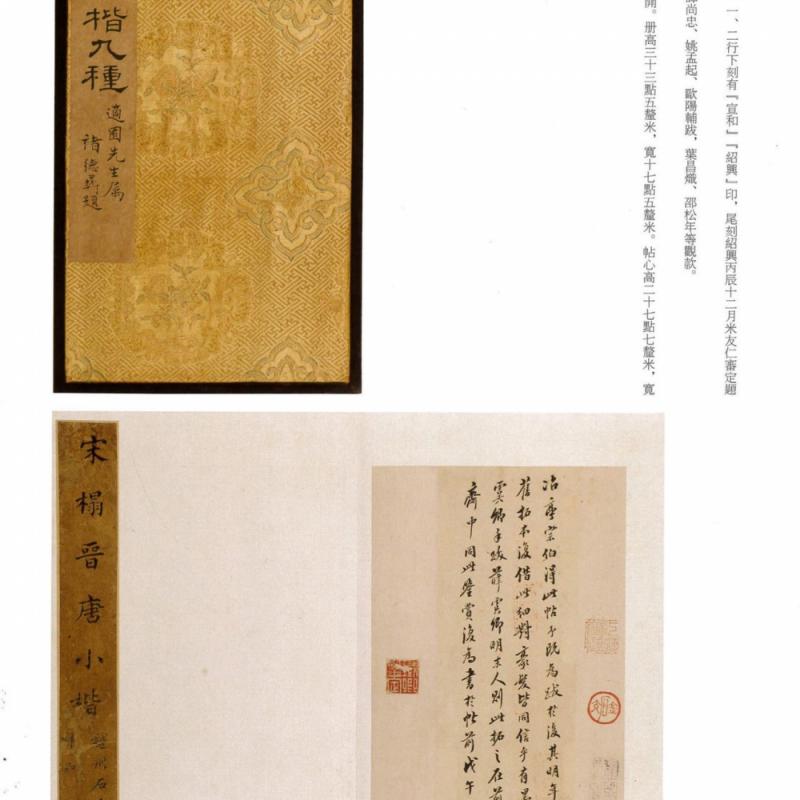 一、二行下刻有『宣和』『紹興』印，尾刻紹興丙辰十二月米友仁審定題
尚忠、姚孟起、歐陽輔跋，葉昌熾、邵松年等觀款。
開。册高三十三點五釐米，寬十七點五釐米。帖心高二十七點七釐米，寬
楷九種
適園先生屬
褚德彝題
冶亭宗伯得此帖予既為跋於後其明年
舊拓本復借此細對豪髮皆同信乎有
雲卿手跋薛雲卿明末人則此拓之在前
齋中同此鑒賞復為書於帖前戊午
宋榻晉唐小楷
越州石